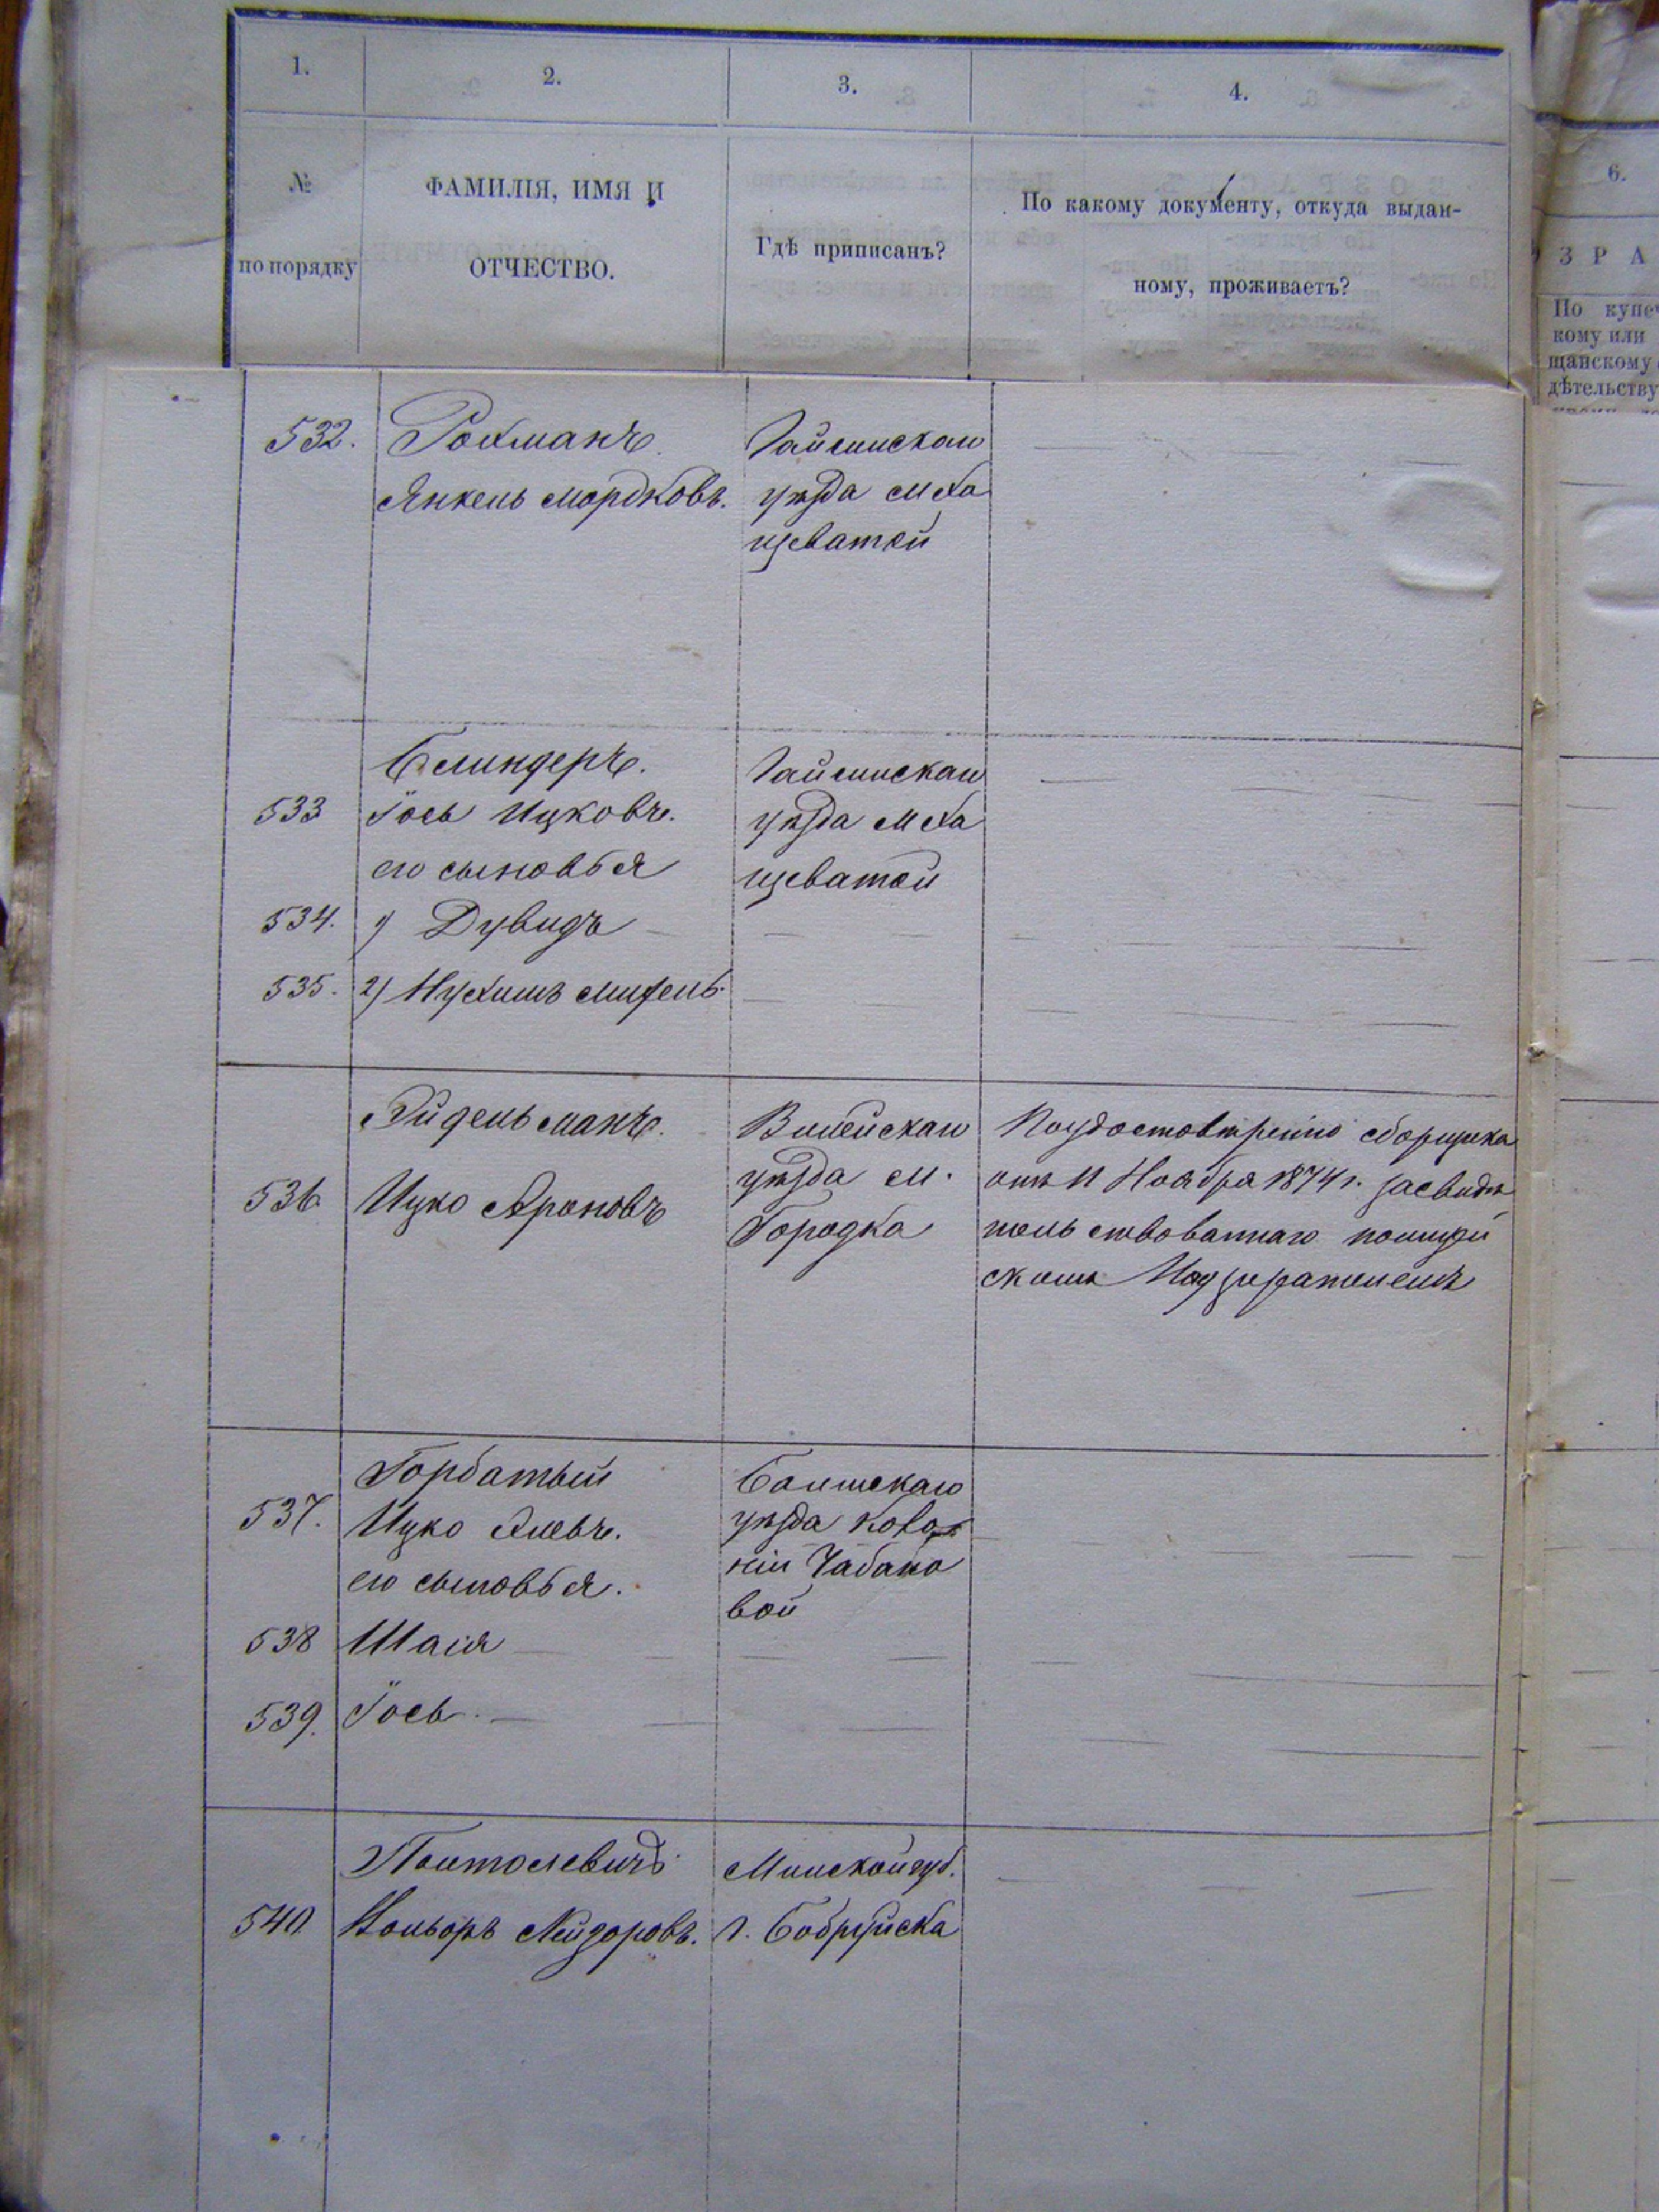 1. 2. 3. 4.
№ по порядку
ФАМИЛІЯ, ИМЯ И
ОТЧЕСТВО.
Гдѣ приписанъ?
По какому документу, откуда выдан-
ному, проживаетъ?
6.
З Р А
По купеч
кому или
щанскому
дѣтельству
532. Рохманъ Гайсинскаго
Янкель Мордковъ. уѣзда м Ха
щеватой
Блиндеръ. Гайсинскаго
533 Іось Ицковъ. уѣзда м Ха
его сыновья щеватой
534. 1) Дувидъ
535. 2) Нухимъ
Эйдельманъ. Вилейскаго По удостовѣренію сборщика
536 Ицко Ароновъ уѣзда м. отъ 11 Ноября 1874 г. засвидѣ
Городка тельствованнаго полицей
скимъ Надзирателемъ
Горбатый Балтскаго
537. Ицко уѣзда коло
его сыновья. ніи Чабано
вой
538 Шаія
539. Іось
Минской губ.
540. г. Бобруйска